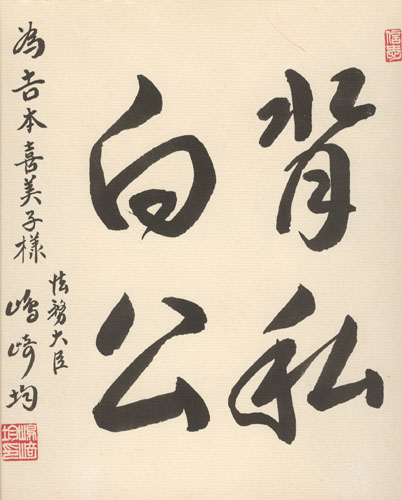 背私
向公
為吉本喜美子様
法務大臣
嶋崎均